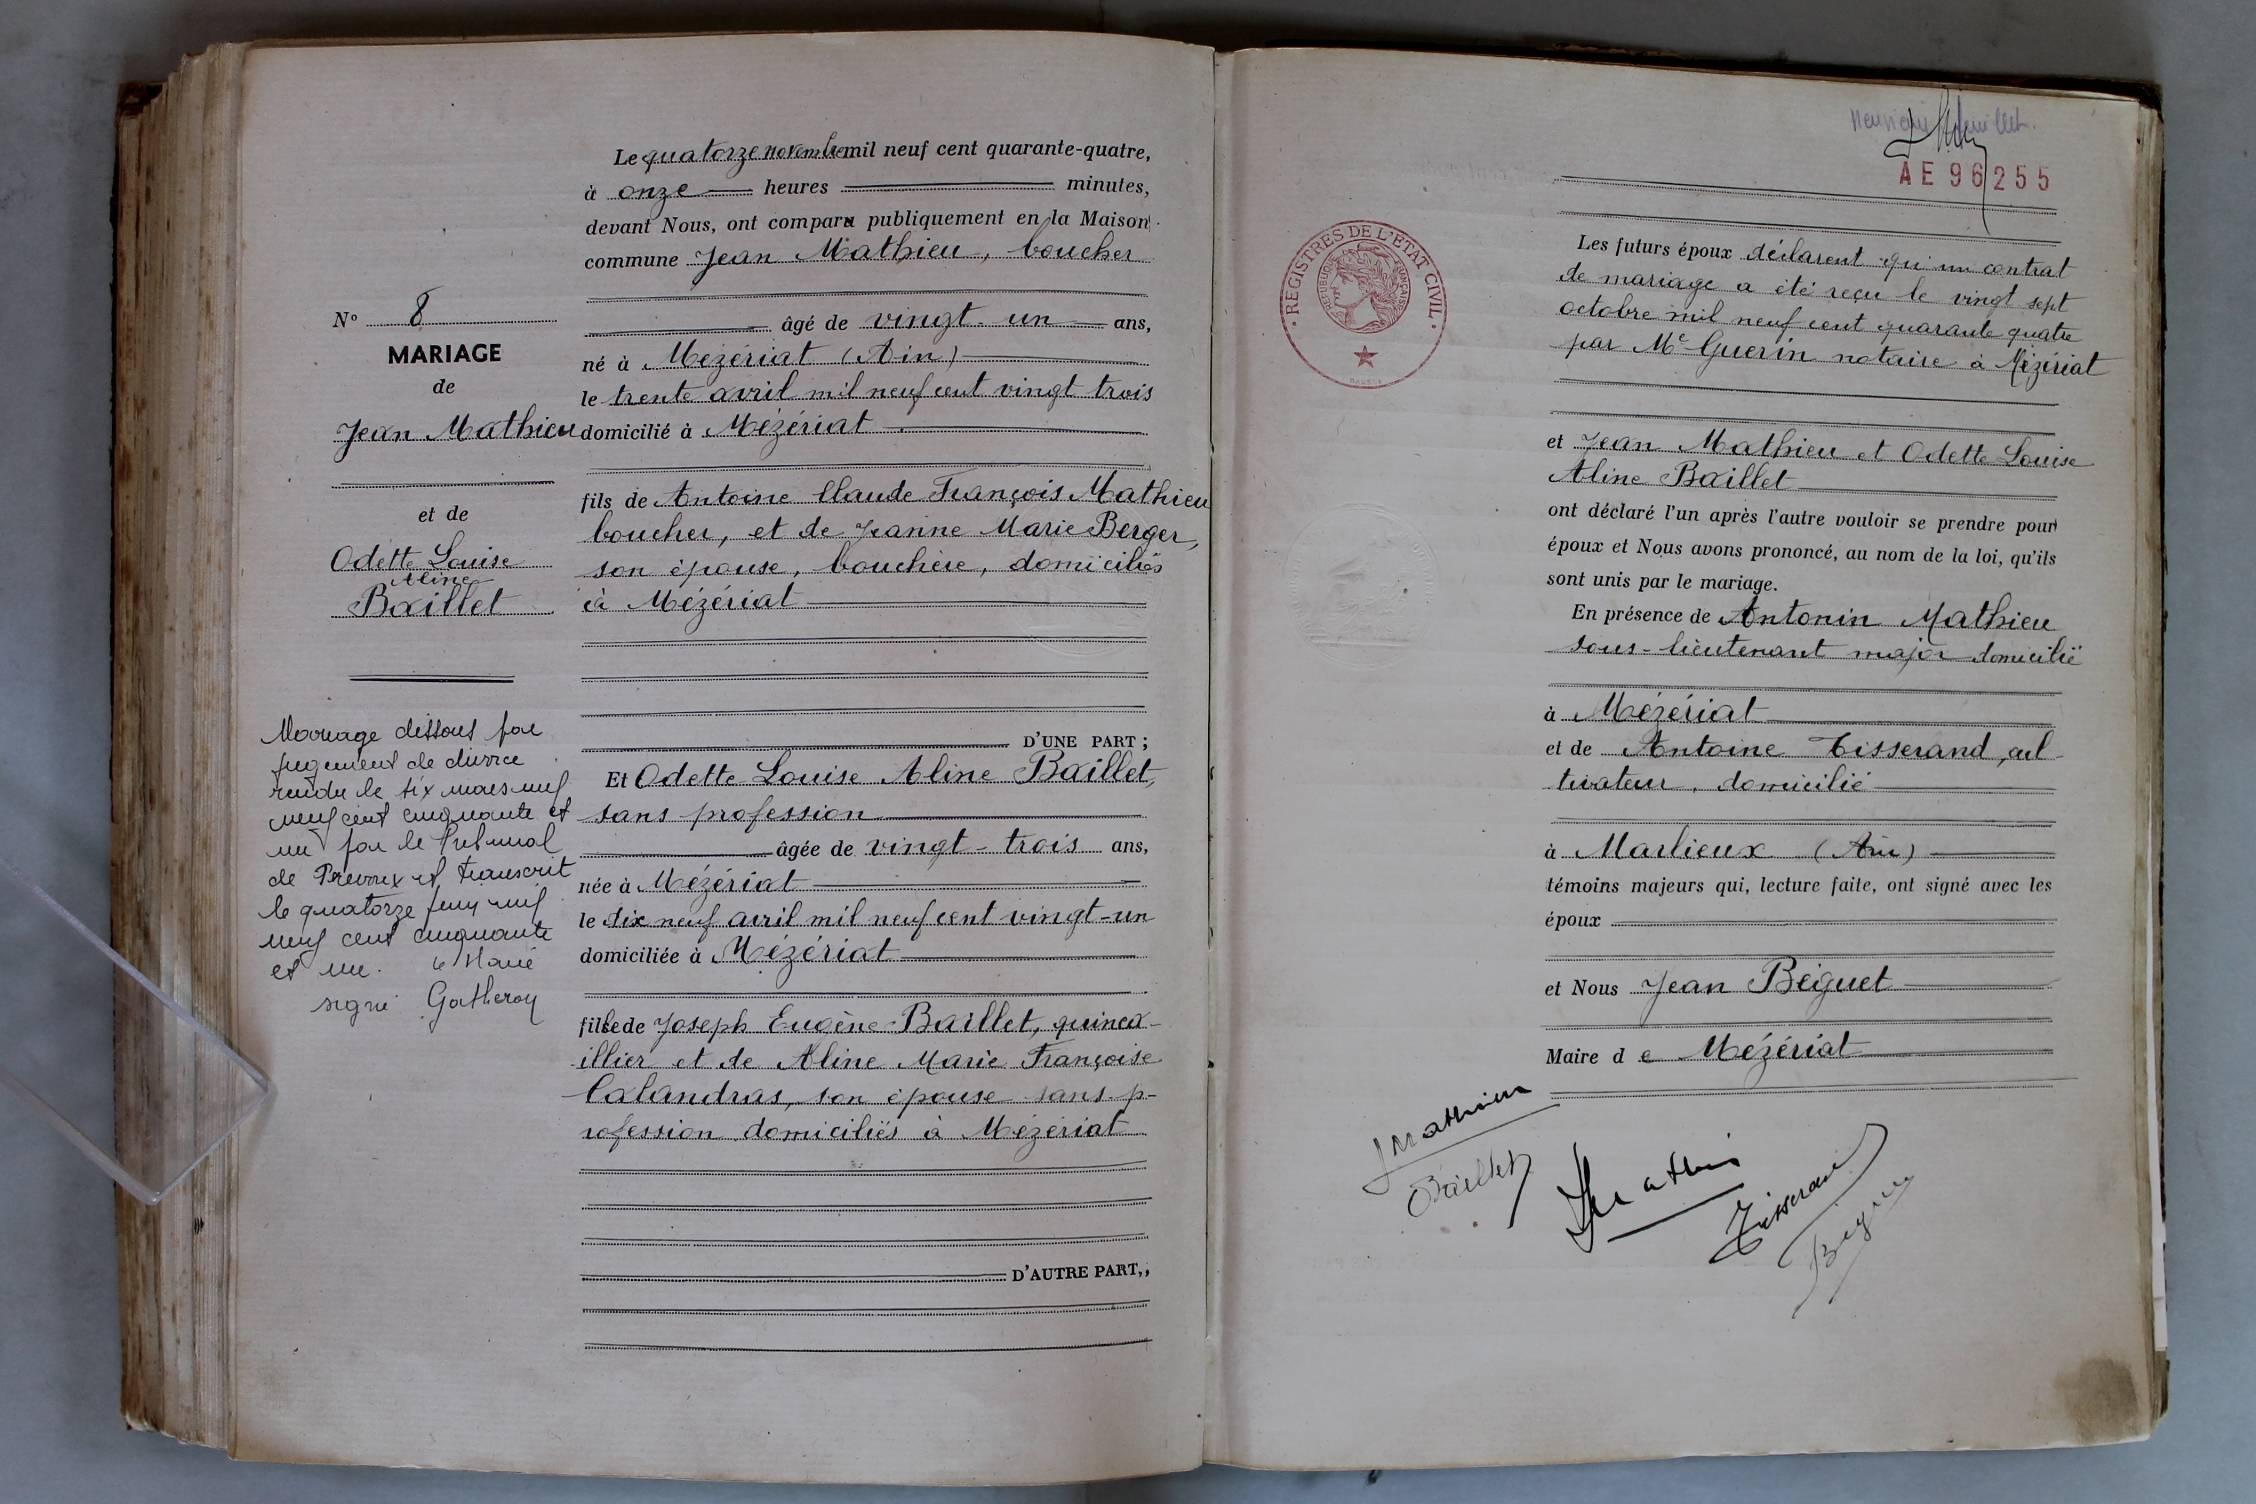 Le quatorze novembre mil neuf cent quarante-quatre,
à onze heures minutes,
devant Nous, ont comparu publiquement en la Maison
commune Jean Mathieu, boucher
âgé de vingt-un ans,
né à Mézériat (Ain)
le trente avril mil neuf cent vingt trois
domicilié à Mézériat
fils de Antoine Claude François Mathieu
boucher, et de Jeanne Marie Berger,
son épouse, bouchère, domiciliés
à Mézériat
D'UNE PART ;
Et Odette Louise Aline Baillet,
sans profession
âgée de vingt-trois ans,
née à Mézériat
le dix neuf avril mil neuf cent vingt-un
domiciliée à Mézériat
fille de Joseph Eugène Baillet, quinca-
illier et de Aline Marie Françoise
Calandras, son épouse sans p-
rofession domiciliés à Mézériat
D'AUTRE PART,,
N° 8
MARIAGE
de
Jean Mathieu
et de
Odette Louise
Aline
Baillet
Mariage dissous par
jugement de divorce
rendu le six mars mil
neuf cent cinquante et
un par le Tribunal
de Trévoux et transcrit
le quatorze juin mil
neuf cent cinquante
et un. Le Maire
signé Gatheron
AE 96255
REGISTRES DE L'ETAT CIVIL
REPUBLIQUE FRANÇAISE
Les futurs époux déclarent qu'un contrat
de mariage a été reçu le vingt sept
octobre mil neuf cent quarante quatre
par Me Guerin notaire à Mézériat
et Jean Mathieu et Odette Louise
Aline Baillet
ont déclaré l'un après l'autre vouloir se prendre pour
époux et Nous avons prononcé, au nom de la loi, qu'ils
sont unis par le mariage.
En présence de Antonin Mathieu
sous-lieutenant major domicilié
à Mézériat
et de Antoine Tisserand, cul-
tivateur, domicilié
à Marlieux (Ain)
témoins majeurs qui, lecture faite, ont signé avec les
époux
et Nous Jean Béguet
Maire de Mézériat
J Mathieu
Baillet
Mathieu
Tisserand
Béguet